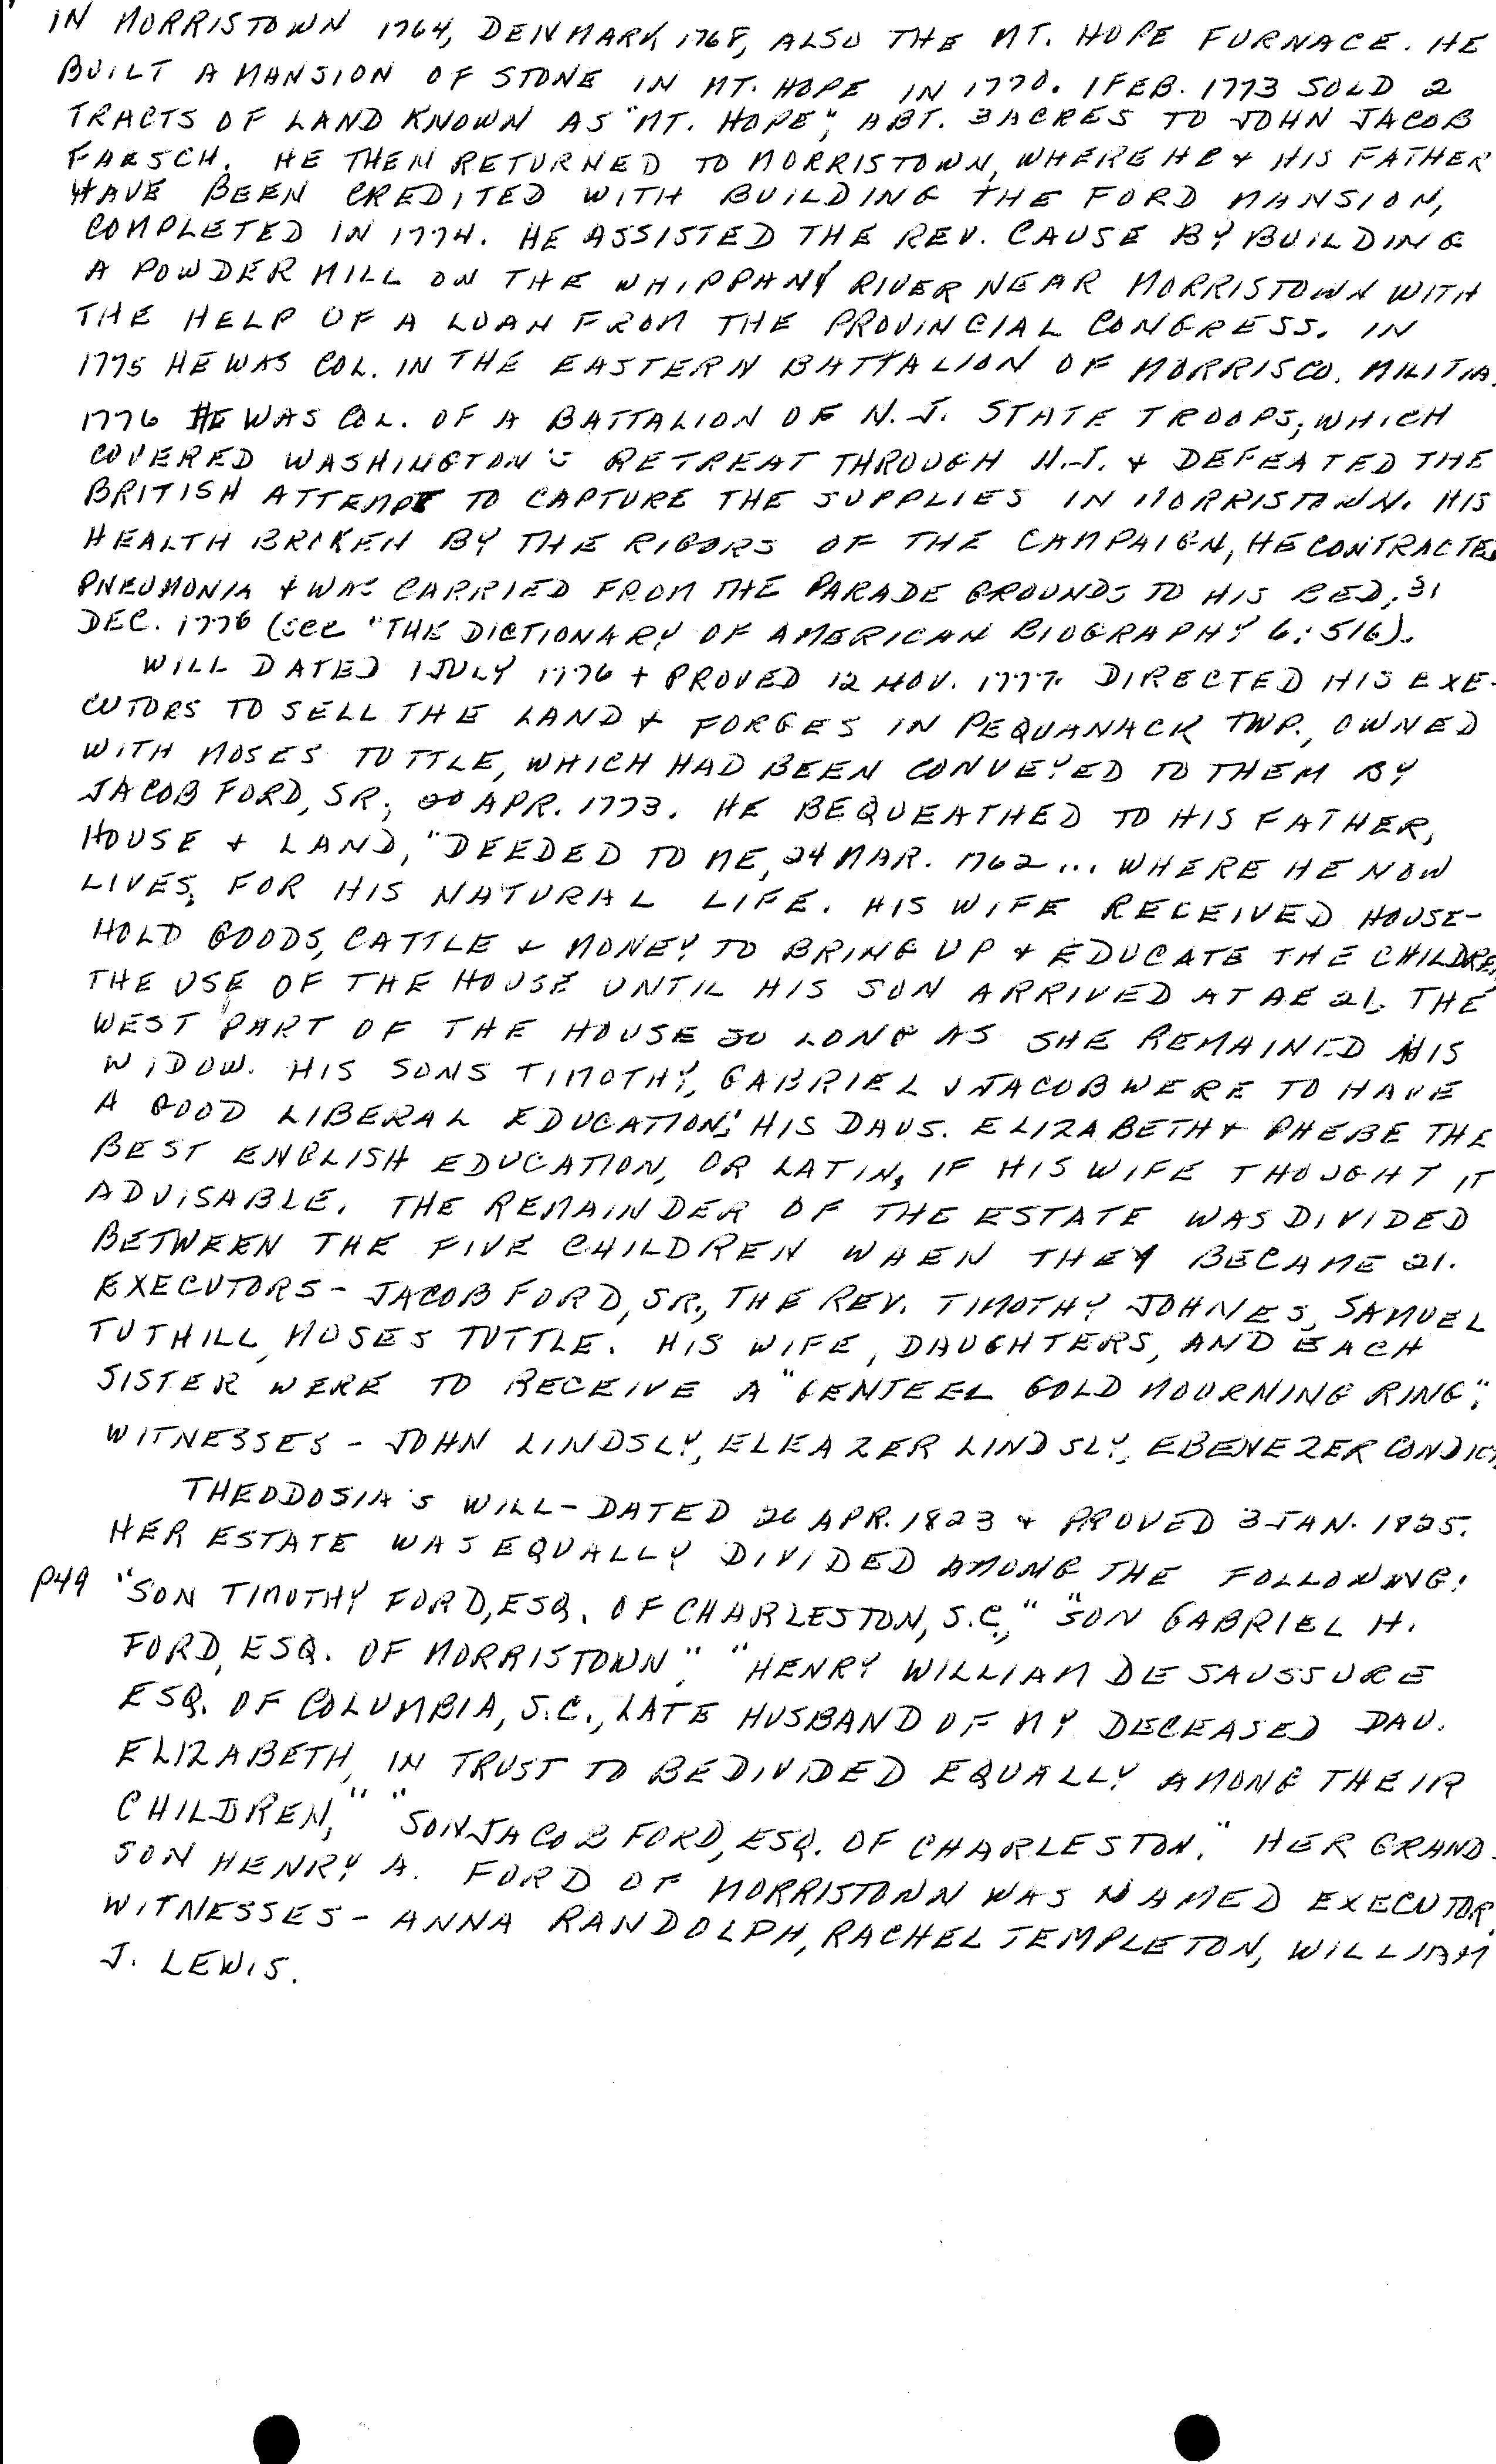 IN MORRISTOWN 1764, DENMARK 1768, ALSO THE MT. HOPE FURNACE. HE
BUILT A MANSION OF STONE IN MT. HOPE IN 1770. 1 FEB. 1773 SOLD 2
TRACTS OF LAND KNOWN AS "MT. HOPE", ABT. 3 ACRES TO JOHN JACOB
FAESCH. HE THEN RETURNED TO MORRISTOWN, WHERE HE & HIS FATHER
HAVE BEEN CREDITED WITH BUILDING THE FORD MANSION,
COMPLETED IN 1774. HE ASSISTED THE REV. CAUSE BY BUILDING
A POWDER MILL ON THE WHIPPANY RIVER NEAR MORRISTOWN WITH
THE HELP OF A LOAN FROM THE PROVINCIAL CONGRESS. IN
1775 HE WAS COL. IN THE EASTERN BATTALION OF MORRIS CO. MILITIA.
1776 HE WAS COL. OF A BATTALION OF N.J. STATE TROOPS, WHICH
COVERED WASHINGTON'S RETREAT THROUGH N.J. & DEFEATED THE
BRITISH ATTEMPT TO CAPTURE THE SUPPLIES IN MORRISTOWN. HIS
HEALTH BROKEN BY THE RIGORS OF THE CAMPAIGN, HE CONTRACTED
PNEUMONIA & WAS CARRIED FROM THE PARADE GROUNDS TO HIS BED, 31
DEC. 1776 (see "THE DICTIONARY OF AMERICAN BIOGRAPHY 6:516).
WILL DATED 1 JULY 1776 & PROVED 12 NOV. 1777. DIRECTED HIS EXE-
CUTORS TO SELL THE LAND & FORGES IN PEQUANACK TWP., OWNED
WITH MOSES TUTTLE, WHICH HAD BEEN CONVEYED TO THEM BY
JACOB FORD, SR., 20 APR. 1773. HE BEQUEATHED TO HIS FATHER,
HOUSE & LAND, "DEEDED TO ME, 24 MAR. 1762 ... WHERE HE NOW
LIVES, FOR HIS NATURAL LIFE. HIS WIFE RECEIVED HOUSE-
HOLD GOODS, CATTLE & MONEY TO BRING UP & EDUCATE THE CHILDREN,
THE USE OF THE HOUSE UNTIL HIS SON ARRIVED AT AE 21, THE
WEST PART OF THE HOUSE SO LONG AS SHE REMAINED HIS
WIDOW. HIS SONS TIMOTHY, GABRIEL & JACOB WERE TO HAVE
A GOOD LIBERAL EDUCATION", HIS DAUS. ELIZABETH & PHEBE THE
BEST ENGLISH EDUCATION, OR LATIN, IF HIS WIFE THOUGHT IT
ADVISABLE. THE REMAINDER OF THE ESTATE WAS DIVIDED
BETWEEN THE FIVE CHILDREN WHEN THEY BECAME 21.
EXECUTORS - JACOB FORD, SR., THE REV. TIMOTHY JOHNES, SAMUEL
TUTHILL, MOSES TUTTLE. HIS WIFE, DAUGHTERS, AND EACH
SISTER WERE TO RECEIVE A "GENTEEL GOLD MOURNING RING".
WITNESSES - JOHN LINDSLY, ELEAZER LINDSLY, EBENEZER CONDICT.
THEODOSIA'S WILL - DATED 26 APR. 1823 & PROVED 3 JAN. 1825.
HER ESTATE WAS EQUALLY DIVIDED AMONG THE FOLLOWING:
P49 "SON TIMOTHY FORD, ESQ. OF CHARLESTON, S.C.," "SON GABRIEL H.
FORD, ESQ. OF MORRISTOWN," "HENRY WILLIAM DE SAUSSURE
ESQ. OF COLUMBIA, S.C., LATE HUSBAND OF MY DECEASED DAU.
ELIZABETH, IN TRUST TO BE DIVIDED EQUALLY AMONG THEIR
CHILDREN," "SON JACOB FORD, ESQ. OF CHARLESTON." HER GRAND-
SON HENRY A. FORD OF MORRISTOWN WAS NAMED EXECUTOR.
WITNESSES - ANNA RANDOLPH, RACHEL TEMPLETON, WILLIAM
J. LEWIS.